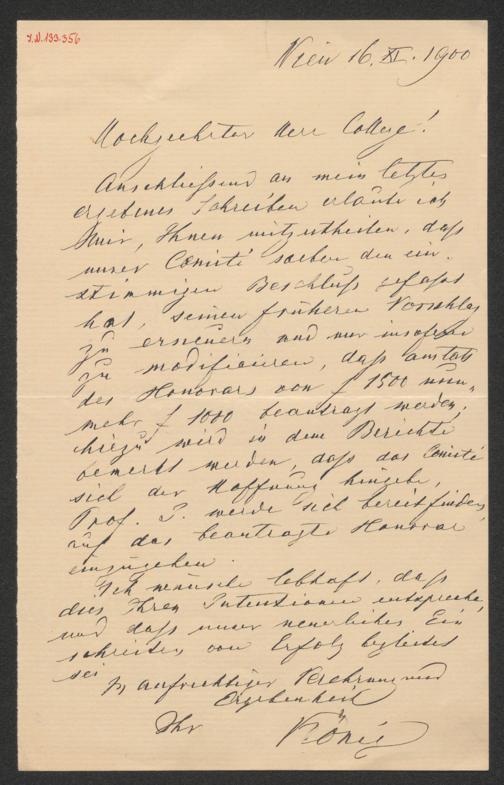 I.N. 133.356
Wien 16. XI. 1900
Hochgeehrter Herr College!
Anschließend an mein letztes
ergebenes Schreiben erlaube ich
mir, Ihnen mitzutheilen, daß
unser Comité soeben den ein-
stimmigen Beschluß gefasst
hat, seinen früheren Vorschlag
zu erneuern und nur insofern
zu modificieren, daß anstatt
des Honorars von f 1500 nun-
mehr f 1000 beantragt werden;
hiezu wird in dem Berichte
bemerkt werden, daß das Comité
sich der Hoffnung hingebe,
Prof. T. werde sich bereitfinden,
auf das beantragte Honorar
einzugehen.
Ich wünsche lebhaft, daß
dies Ihren Intentionen entspreche,
und daß unser neuerliches Ein
schreiten von Erfolg begleitet
sei
In aufrichtiger Verehrung und
Ergebenheit
Ihr